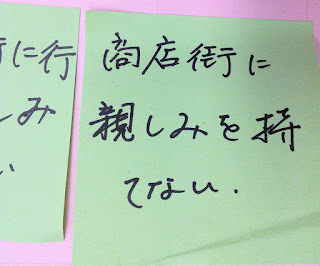 商店街に
親しみを持
てない.
に行
しみ
い